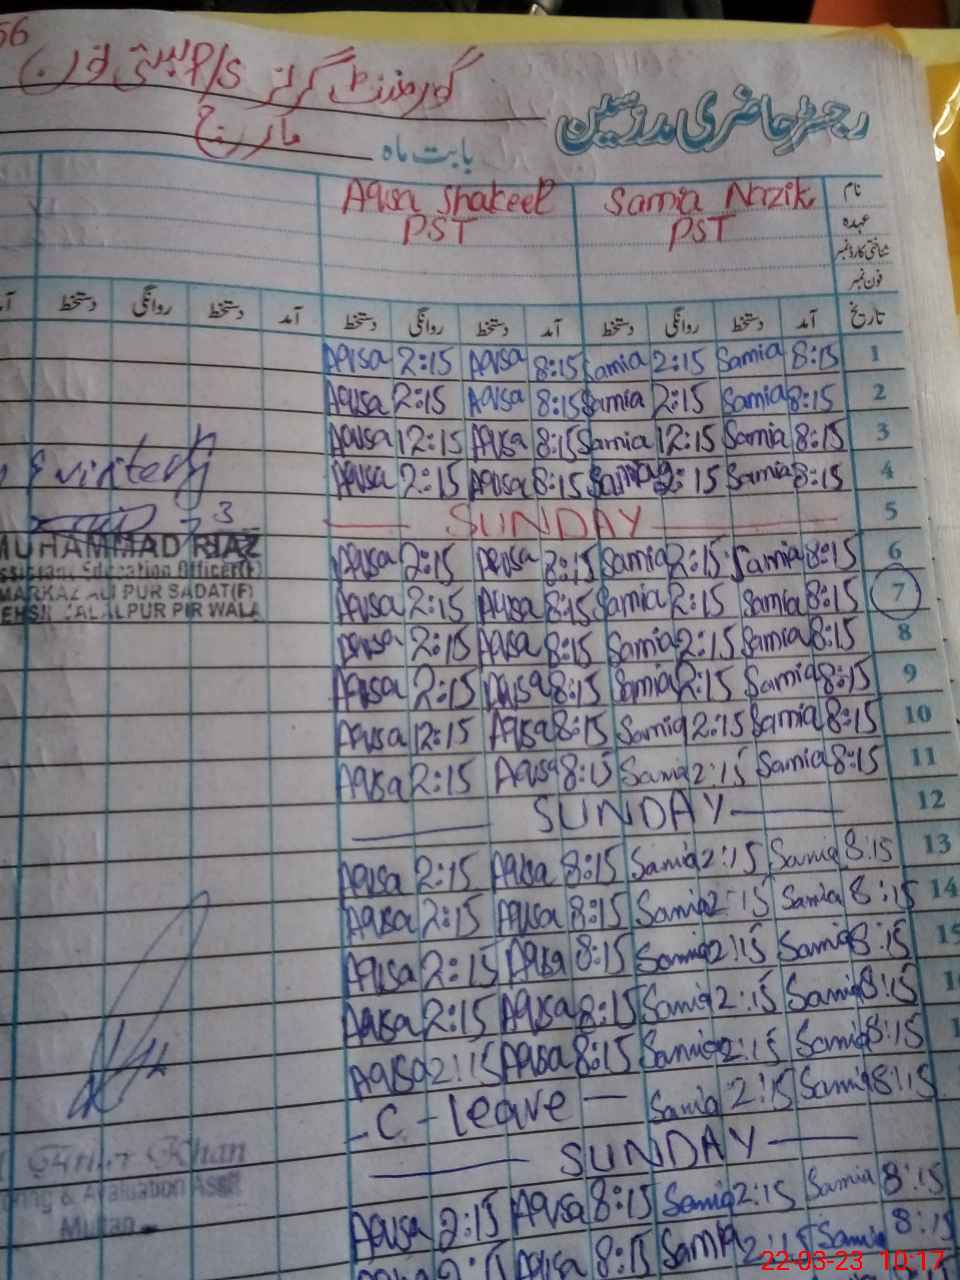 56
گورمنٹ گرلز P/S بستی
رجسٹر حاضری مدرسین
بابت ماہ مارچ
Aqsa Shakeel Samia Nazik نام
PST PST عہدہ
شناختی کارڈ نمبر
فون نمبر
دستخط روانگی دستخط آمد دستخط روانگی دستخط آمد دستخط روانگی دستخط آمد تاریخ
Aqsa 2:15 Aqsa 8:15 Samia 2:15 Samia 8:15 1
Aqsa 2:15 Aqsa 8:15 Samia 2:15 Samia 8:15 2
Aqsa 12:15 Aqsa 8:15 Samia 12:15 Samia 8:15 3
Aqsa 2:15 Aqsa 8:15 Samia 2:15 Samia 8:15 4
SUNDAY 5
Aqsa 2:15 Aqsa 8:15 Samia 2:15 Samia 8:15 6
Aqsa 2:15 Aqsa 8:15 Samia 2:15 Samia 8:15 7
Aqsa 2:15 Aqsa 8:15 Samia 2:15 Samia 8:15 8
Aqsa 2:15 Aqsa 8:15 Samia 2:15 Samia 8:15 9
Aqsa 12:15 Aqsa 8:15 Samia 2:15 Samia 8:15 10
Aqsa 2:15 Aqsa 8:15 Samia 2:15 Samia 8:15 11
SUNDAY 12
Aqsa 2:15 Aqsa 8:15 Samia 2:15 Samia 8:15 13
Aqsa 2:15 Aqsa 8:15 Samia 2:15 Samia 8:15 14
Aqsa 2:15 Aqsa 8:15 Samia 2:15 Samia 8:15 15
Aqsa 2:15 Aqsa 8:15 Samia 2:15 Samia 8:15
Aqsa 2:15 Aqsa 8:15 Samia 2:15 Samia 8:15
C - leave Samia 2:15 Samia 8:15
SUNDAY
Aqsa 2:15 Aqsa 8:15 Samia 2:15 Samia 8:15
Aqsa 8:15 Samia 2:15 Samia 8:15
MUHAMMAD RIAZ
Assistant Education Officer(F)
MARKAZ ALI PUR SADAT(F)
TEHSIL JALALPUR PIR WALA
Khan
& Evaluation Asstt
Multan
22-03-23 10:17